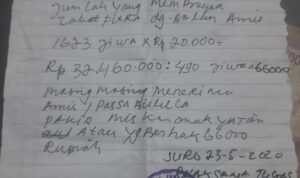 Jumlah yang membayar
Zakat Fitra dg. Bahan Amil
1623 Jiwa X Rp 20.000=
Rp 32.460.000: 490 Jiwa = 66000
masing masing menerima
Amil,
Fakir miskin anak yatim
Atau yg Berhak 66000
Rupiah
JURG 23-5-2020